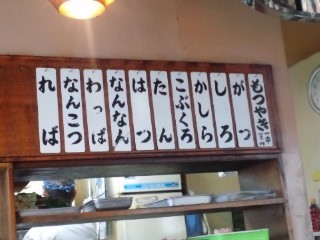 もつやき
がつ
しろ
かしら
こぶくろ
たん
はつ
なんなん
わっぱ
なんこつ
ればー